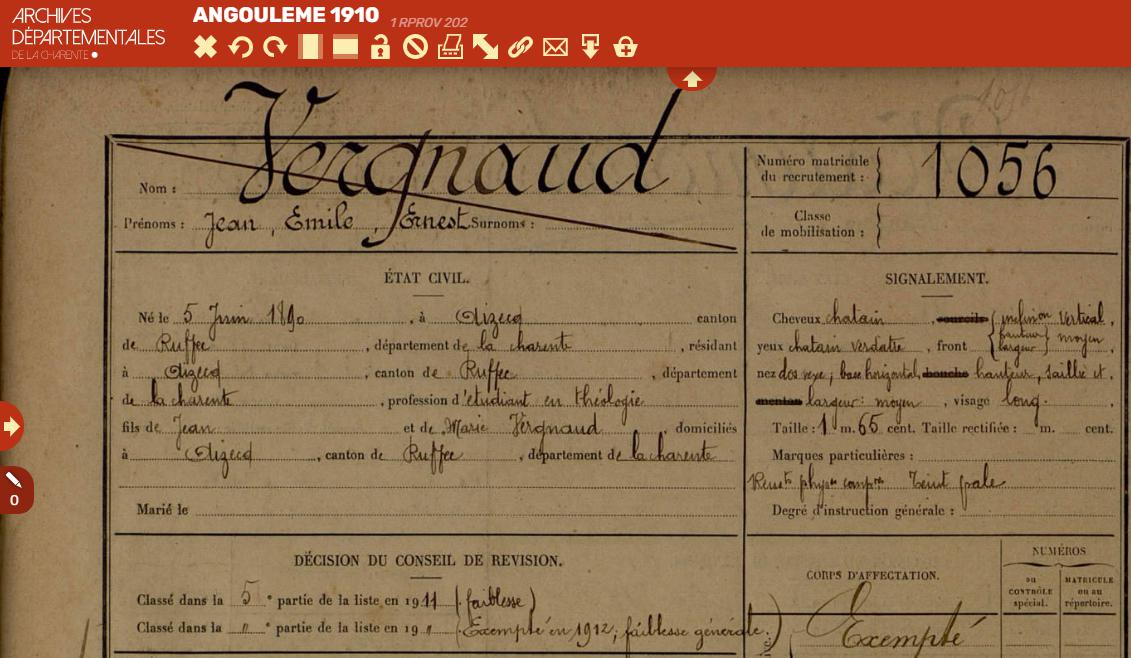 ARCHIVES
DÉPARTEMENTALES
DE LA CHARENTE
ANGOULEME 1910 1 RPROV 202
0
Vergnaud
Nom :
Prénoms : Jean, Emile, Ernest Surnoms :
Numéro matricule
du recrutement : 1056
Classe
de mobilisation :
ÉTAT CIVIL.
Né le 5 Juin 1890, à Aizecq canton
de Ruffec, département de la charente, résidant
à Aizecq, canton de Ruffec, département
de la charente, profession d'étudiant en théologie
fils de Jean et de Marie Vergnaud, domiciliés
à Aizecq, canton de Ruffec, département de la charente
Marié le
SIGNALEMENT.
Cheveux chatain, sourcils inclinon Vertical,
yeux chatain verdatre, front hauteur largeur moyen,
nez dos vexe; base horizontal, bouche hauteur, saillie et,
menton largeur: moyen, visage long.,
Taille : 1 m. 65 cent. Taille rectifiée : m. cent.
Marques particulières :
Rensts physes compres Teint pale
Degré d'instruction générale :
DÉCISION DU CONSEIL DE REVISION.
Classé dans la 5e partie de la liste en 1911 (faiblesse)
Classé dans la "e partie de la liste en 19" (Exempté en 1912; faiblesse générale.)
CORPS D'AFFECTATION.
NUMÉROS
au
CONTRÔLE
spécial.
MATRICULE
ou au
répertoire.
Exempté